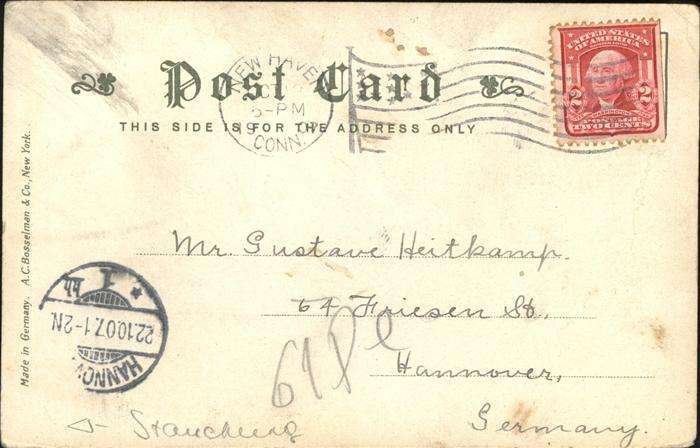 Post Card
THIS SIDE IS FOR THE ADDRESS ONLY
NEW HAVEN
5-PM
19
CONN.
UNITED STATES
OF AMERICA
2 2
POSTAGE
TWO CENTS
Made in Germany. A.C. Bosselman & Co., New York.
Mr. Gustave Heitkamp.
64 Friesen St.
Hannover,
Germany.
HANNOV
22.10.07.1-2N.
1